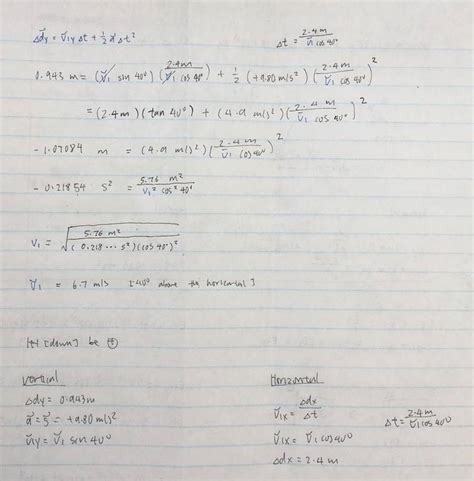 Δd⃗y = v⃗1y Δt + ½ a⃗ Δt²
Δt = 2.4 m / v⃗1 cos 40°
0.943 m = (v⃗1 sin 40°)(2.4 m / v⃗1 cos 40°) + ½ (+9.80 m/s²)(2.4 m / v⃗1 cos 40°)²
= (2.4 m)(tan 40°) + (4.9 m/s²)(2.4 m / v⃗1 cos 40°)²
- 1.07084 m = (4.9 m/s²)(2.4 m / v⃗1 cos 40°)²
- 0.21854 s² = 5.76 m² / v1² cos² 40°
v1 = √(5.76 m² / (0.218... s²)(cos 40°)²)
v⃗1 = 6.7 m/s [40° above the horizontal]
let [down] be ⊕
Vertical
Δdy = 0.943 m
a⃗ = g⃗ = +9.80 m/s²
v⃗1y = v⃗1 sin 40°
Horizontal
v⃗1x = Δdx / Δt
v⃗1x = v⃗1 cos 40°
Δdx = 2.4 m
Δt = 2.4 m / v⃗1 cos 40°